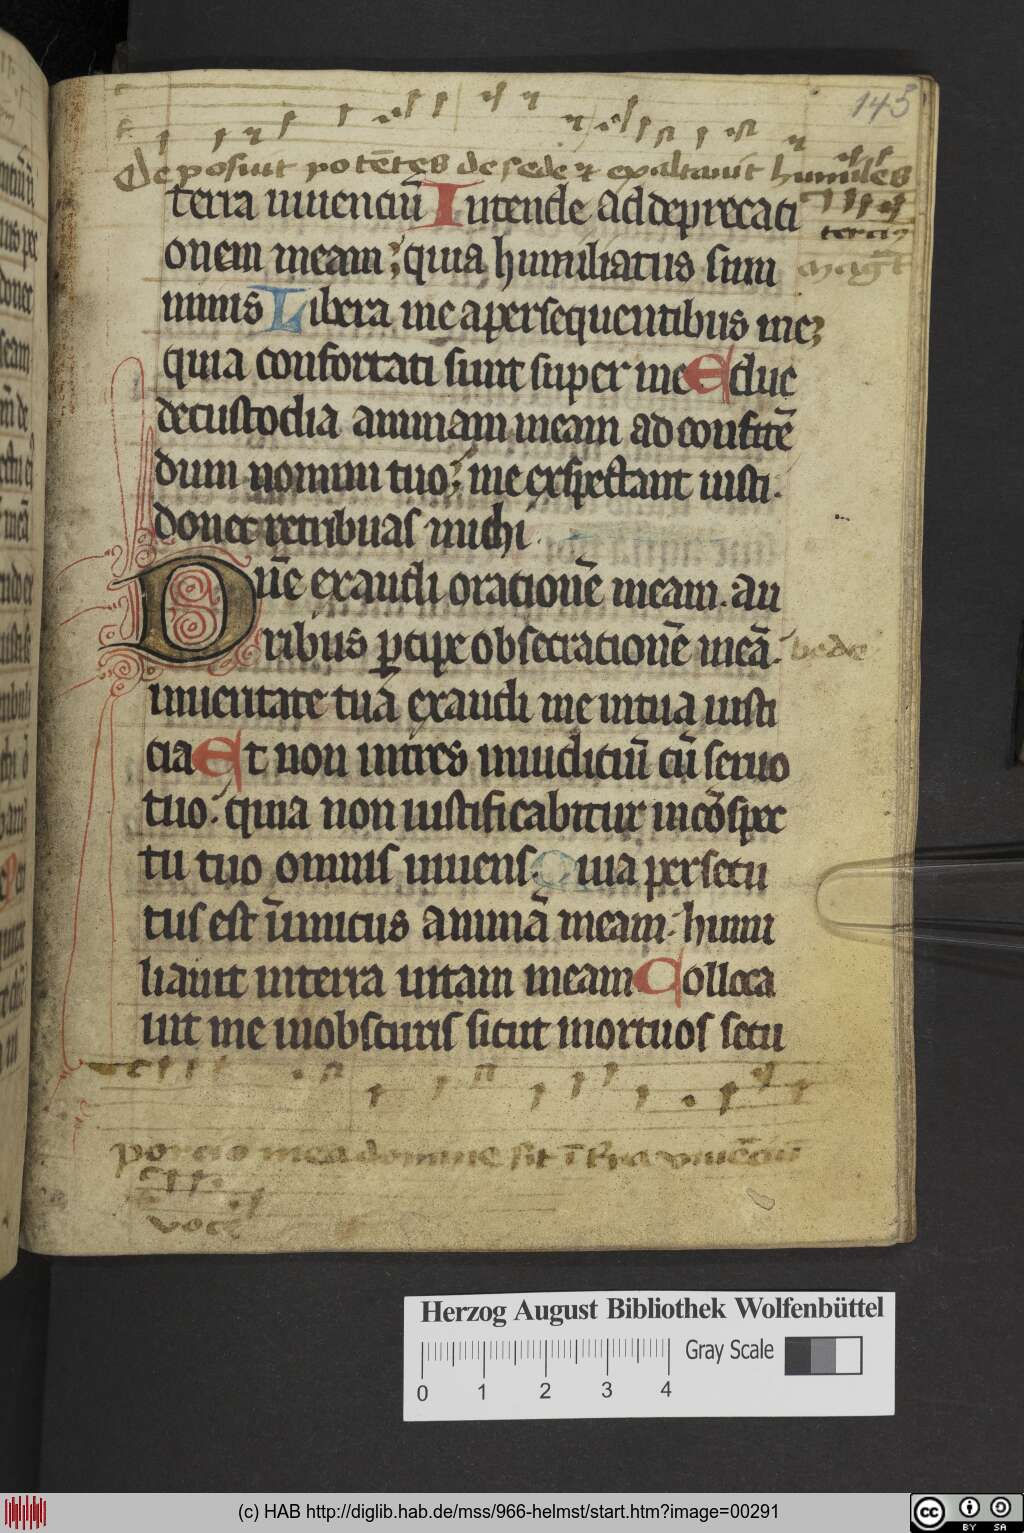 145
Deposuit potētes de sede et exaltauit humiles
terra uiuenciū Intende ad deprecati
tercius
onem meam; quia humiliatus sum
magt
nimis Libera me a persequentibus me;
quia confortati sunt super me Educ
de custodia animam meam ad confitē
dum nomini tuo; me exspectant iusti.
donec retribuas michi.
Dn̄e exaudi orationē meam. au
ribus ꝑcipe obsecrationē meā.
bede
in ueritate tuā exaudi me in tua iusti
cia Et non intres in iudiciū cū seruo
tuo. quia non iustificabitur in cōspec
tu tuo omnis uiuens. Quia persecu
tus est īnimicus animā meam. humi
liauit in terra uitam meam Colloca
uit me in obscuris sicut mortuos secu
porcio mea domine sit ī t̄ra viuēciū
voce
Herzog August Bibliothek Wolfenbüttel
Gray Scale
0 1 2 3 4
(c) HAB http://diglib.hab.de/mss/966-helmst/start.htm?image=00291
cc BY SA